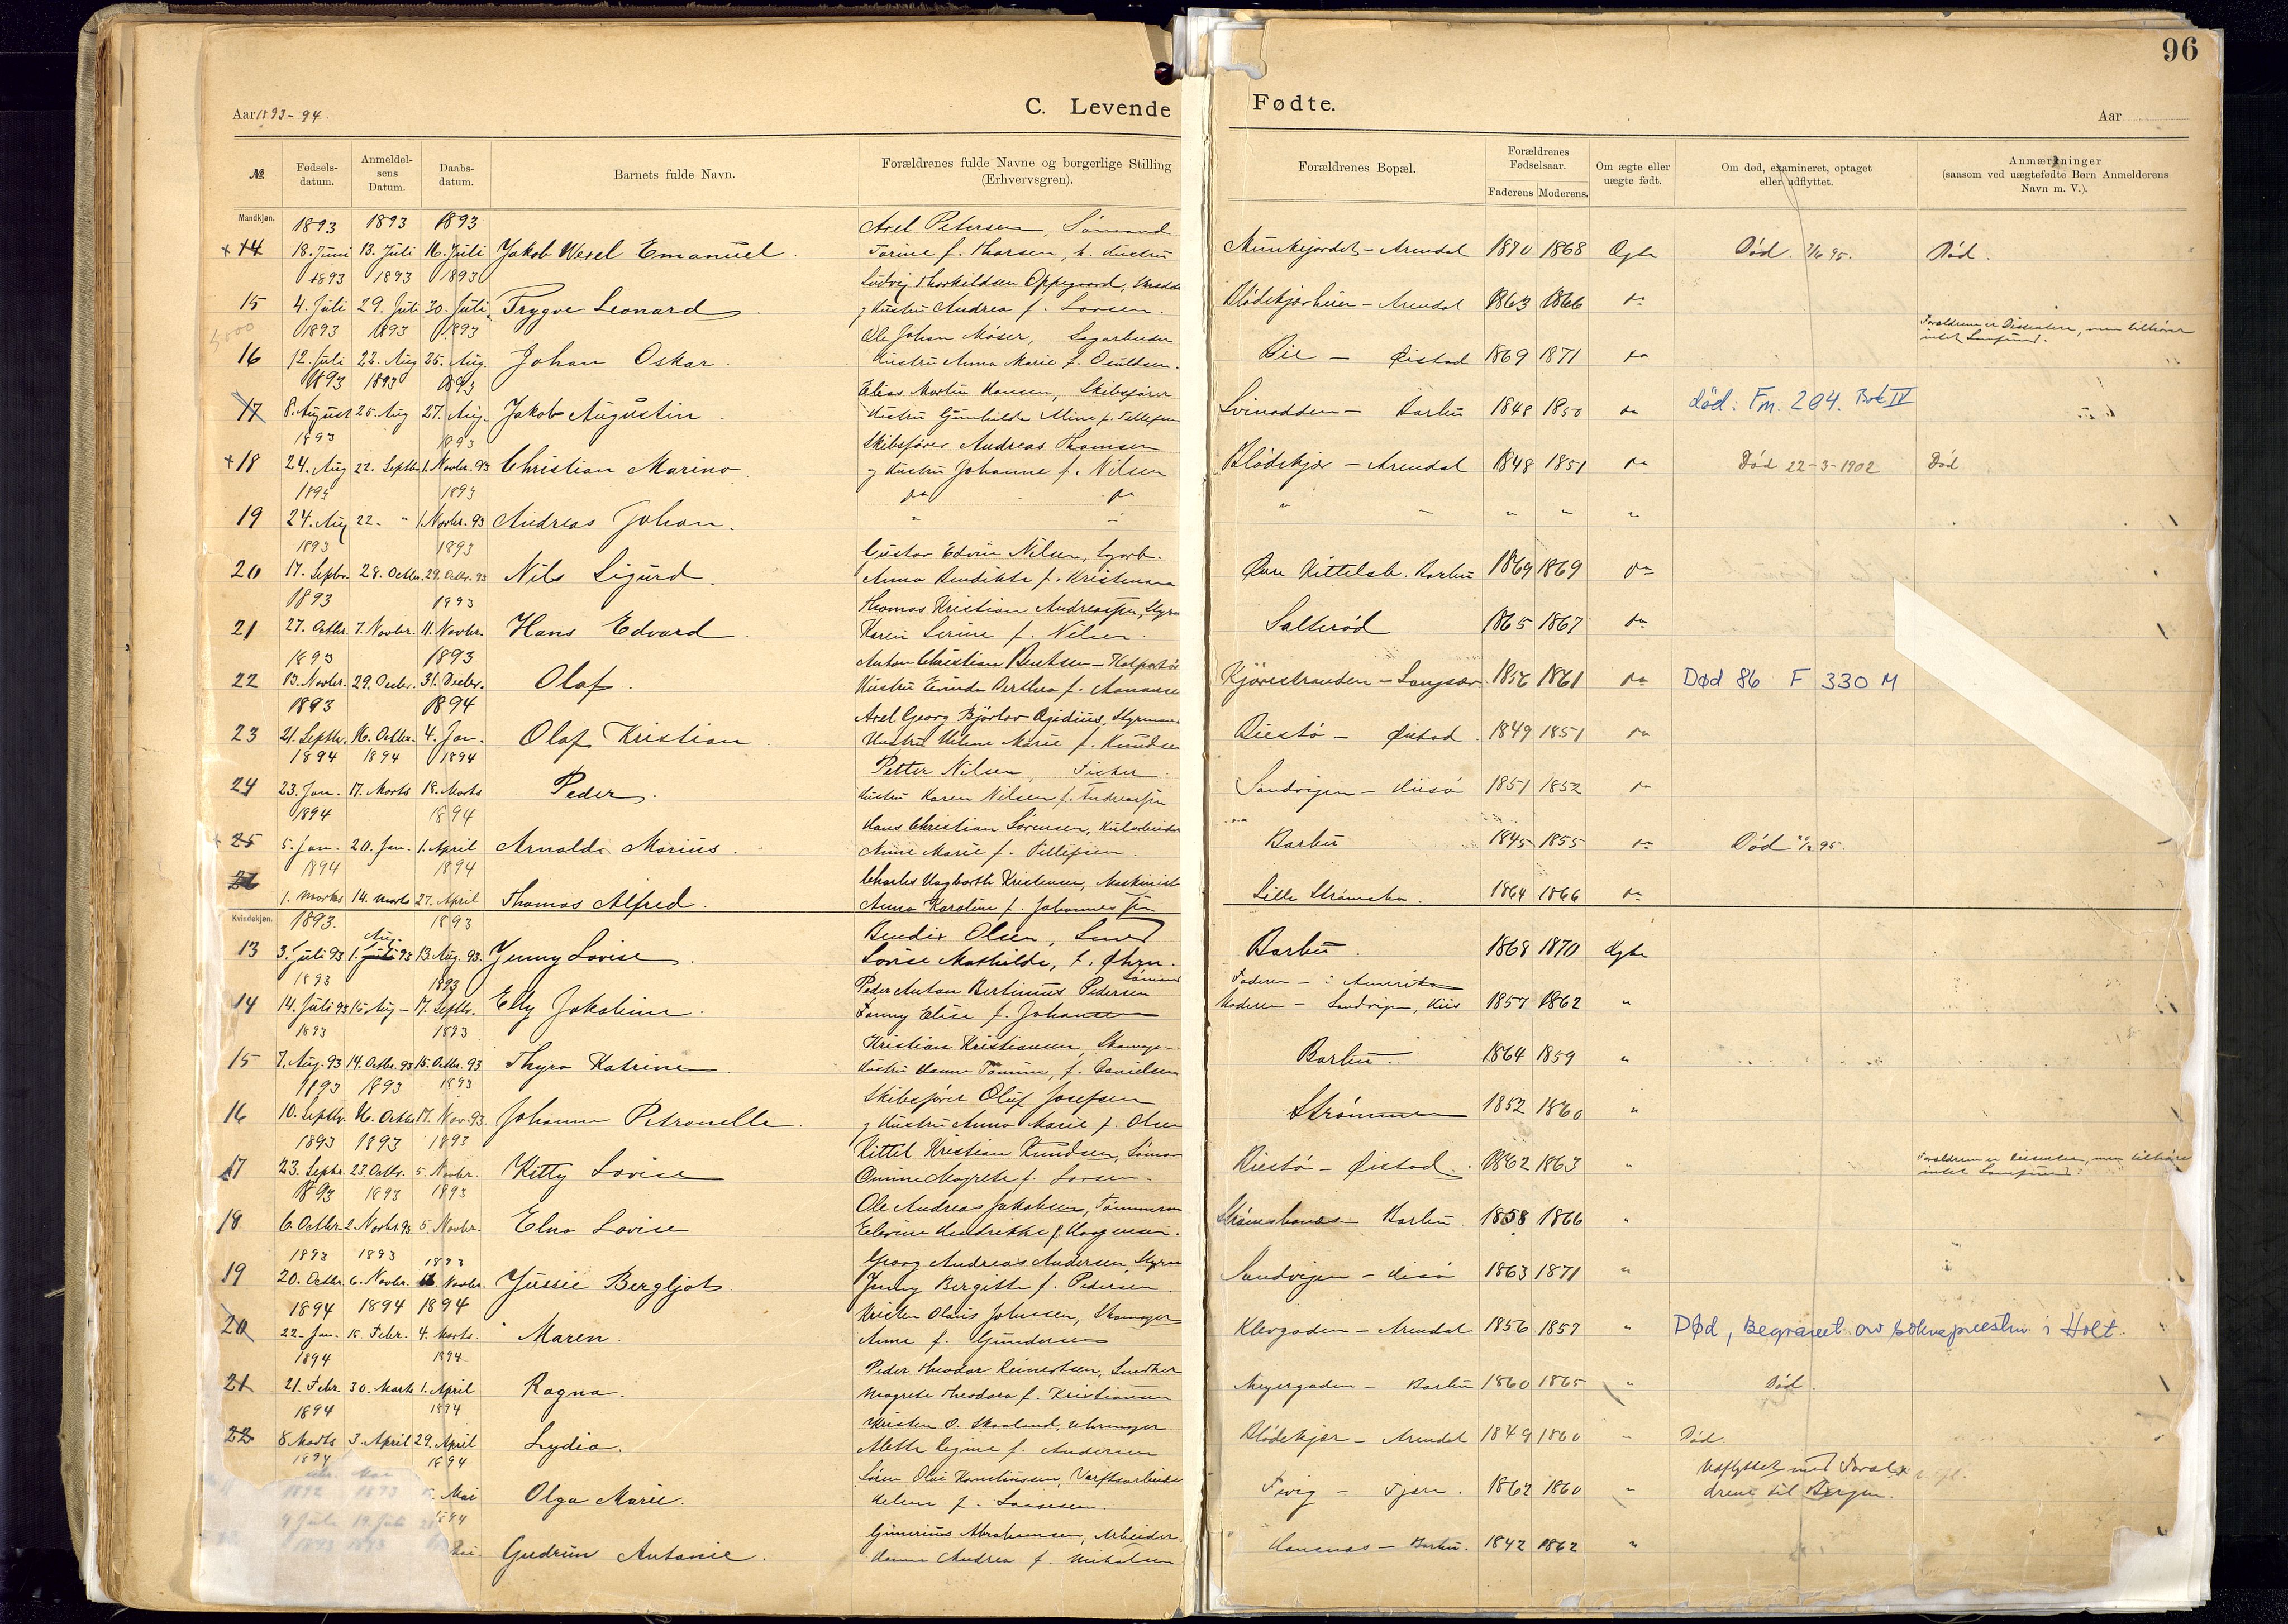 96
Aar 1893-94.
C. Levende
Fødte.
Aar
№
Fødsels-datum.
Anmeldel-sens Datum.
Daabs-datum.
Barnets fulde Navn.
Forældrenes fulde Navne og borgerlige Stilling (Erhvervsgren).
Forældrenes Bopæl.
Forældrenes Fødselsaar.
Faderens Moderens.
Om ægte eller uægte født.
Om død, examineret, optaget eller udflyttet.
Anmærkninger (saasom ved uægtefødte Børn Anmelderens Navn m. V.).
Mandkjøn.
1893 1893 1893 Axel Petersen, Sømand
14 18. Juni 13. Juli 16. Juli Jakob Wexel Emanuel. Torine f. Thorsen, h. Hustru Arendal 1870 1868 Ægte Død Død.
1893 1893 1893 Ludvig Thorkildsen Oppegaard,
15 4. Juli 29. Juli 30. Juli Trygve Leonard Hustru Andrea f. Larsen. Blødekjærheien - Arendal 1863 1866 do
1893 1893 1893 Ole Johan Moser, Sagarbeider Forældrene er Dissentere, men tilhører intet Samfund.
16 12. Juli 22. Aug 25. Aug. Johan Oskar. Hustru Anna Marie f. Osuldsen. Bie - Øistad 1869 1871 do
1893 1893 1893 Elias Martin Hansen, Skibsfører
17 8. August 25. Aug 27. Aug. Jakob Augustin. Hustru Gunhilde Aline f. Tellefsen Svinodden - Barbu 1848 1850 do død: Fm. 204. Bok IV
1893 1893 Skibsfører Andreas Thomsen
18 24. Aug 22. Septbr. 1. Novbr. 93 Christian Marino Hustru Johanne f. Nilsen Blødekjær - Arendal 1848 1851 do Død 22-3-1902 Død
1893 1893 do do
19 24. Aug 22. " 1. Novbr. 93 Andreas Johan. " " " " " " "
1893 1893 Gustav Edvin Nilsen,
20 17. Septbr. 28. Octbr. 29. Octbr. 93 Nils Sigurd. Anna Bendikte f. Kristensen Øvre Kittelsb. Barbu 1869 1869 do
1893 1893 Thomas Kristian Andreassen, Styrm
21 27. Octbr. 7. Novbr. 11. Novbr. Hans Edvard. Karen Serine f. Nilsen. Salterød 1865 1867 do
1893 1893 Anton Christian Bentsen - Kolportør
22 13. Novbr. 29. Decbr. 31. Decbr. Olaf. Hustru Berthea f. Kjørestranden - Langsæv 1856 1861 do Død 86 F 330 M
1893 1894 Axel Georg Bjørlov Egidius, Styrmand
23 21. Septbr. 16. Octbr. 4. Jan. Olaf Kristian. Hustru Helene Marie f. Knudsen Biestø - Øistad. 1849 1851 do
1894 1894 1894 Petter Nilsen, Fisker.
24 23. Jan. 17. Marts 18. Marts Peder. Hustru Karen Nilsen f. Andreassen Sandvigen - Hisø 1851 1852 do
1894 1894 Hans Christian Sørensen, Kularbeider
25 5. Jan. 20. Jan. 1. April Arnolds Marius. Anne Marie f. Tellefsen. Barbu 1845 1855 do Død
1894 1894 Charles Hagbarth Kristensen, Maskinist
26 1. Marts 14. Marts 27. April Thomas Alfred. Anna Karoline f. Johannessen Lille 1864 1866 do
Kvindekjøn.
1893 Aug 1893 Bendix Olsen, Smed
13 3. Juli 93 1. Juli 93 13. Aug. 93. Jenny Lovise. Lovise Mathilde, f. Barbu. 1868 1870 Ægte
1893 1893 Peder Anton Bertinius Pedersen Sømand Faderen - i Amerika
14 14. Juli 93 15. Aug - 17. Septbr. Elly Jakobine. Fanny Elise f. Johansen Moderen - Sandvigen, His 1857 1862 "
1893 1893 Kristian Kristiansen, Skomager
15 7. Aug. 93 14. Octbr. 93 15. Octbr. 93 Thyra Katrine Hustru Hanne f. Danielsen Barbu. 1864 1859 "
1893 1893 1893 Skibsfører Oluf Josefsen
16 10. Septbr. 16. Octbr. 17. Nov. 93. Johanne Petronelle. Hustru Anna Marie f. Olsen Strømmen 1852 1860 "
1893 1893 1893 Kittel Kristian Knudsen, Sømand
17 23. Septbr. 23 Octbr. 5. Novbr. Kitty Lovise Magrete f. Larsen. Biestø - Øistad. 1862 1863 " Forældrene er Dissentere, men tilhører intet Samfund.
1893 1893 1893 Ole Andreas Jakobsen, Tømmerm
18 6. Octbr. 2. Novbr. 93 5. Novbr. Elna Lovise Hendrikke f. Barbu 1858 1866 "
1893 1893 1893 Georg Andreas Andersen, Styrm
19 20. Octbr. 6. Novbr. Novbr. Jussie Bergljot Jenny Bergitte f. Pedersen. Sandvigen - Hisø 1863 1871 "
1894 1894 1894 Kristen Olaus Johnsen, Skomager
20 22. Jan. 15. Febr. 4. Marts. Maren. Anne f. Gundersen Klevgaden - Arendal 1856 1857 " Død, Begravet av soknepresten i Holt.
1894 1894 Peder Theodor Reinertsen, Snedker
21 21. Febr. 30. Marts 1. April Ragna. Magrete Theodora f. Kristiansen Meyergaden - Barbu 1860 1865 " Død.
1894 1894 Kristen O. Skaaland, Uhrmager
22 8 Marts 3. April 29. April Lydia. Mette Regine f. Andersen Blødekjær - Arendal 1849 1860 " Død.
1894 1894 Søren Olai Værftsarbeider Udflyttet med Foræl-
Mai Olga Marie. Helene f. Fevig - Fjære. 1862 1860 " drene til Bergen.
1894 Gunerius Abrahamsen, Arbeider.
Gudrun Antonie. Hanne Andrea f. Barbu. 1842 1862 "